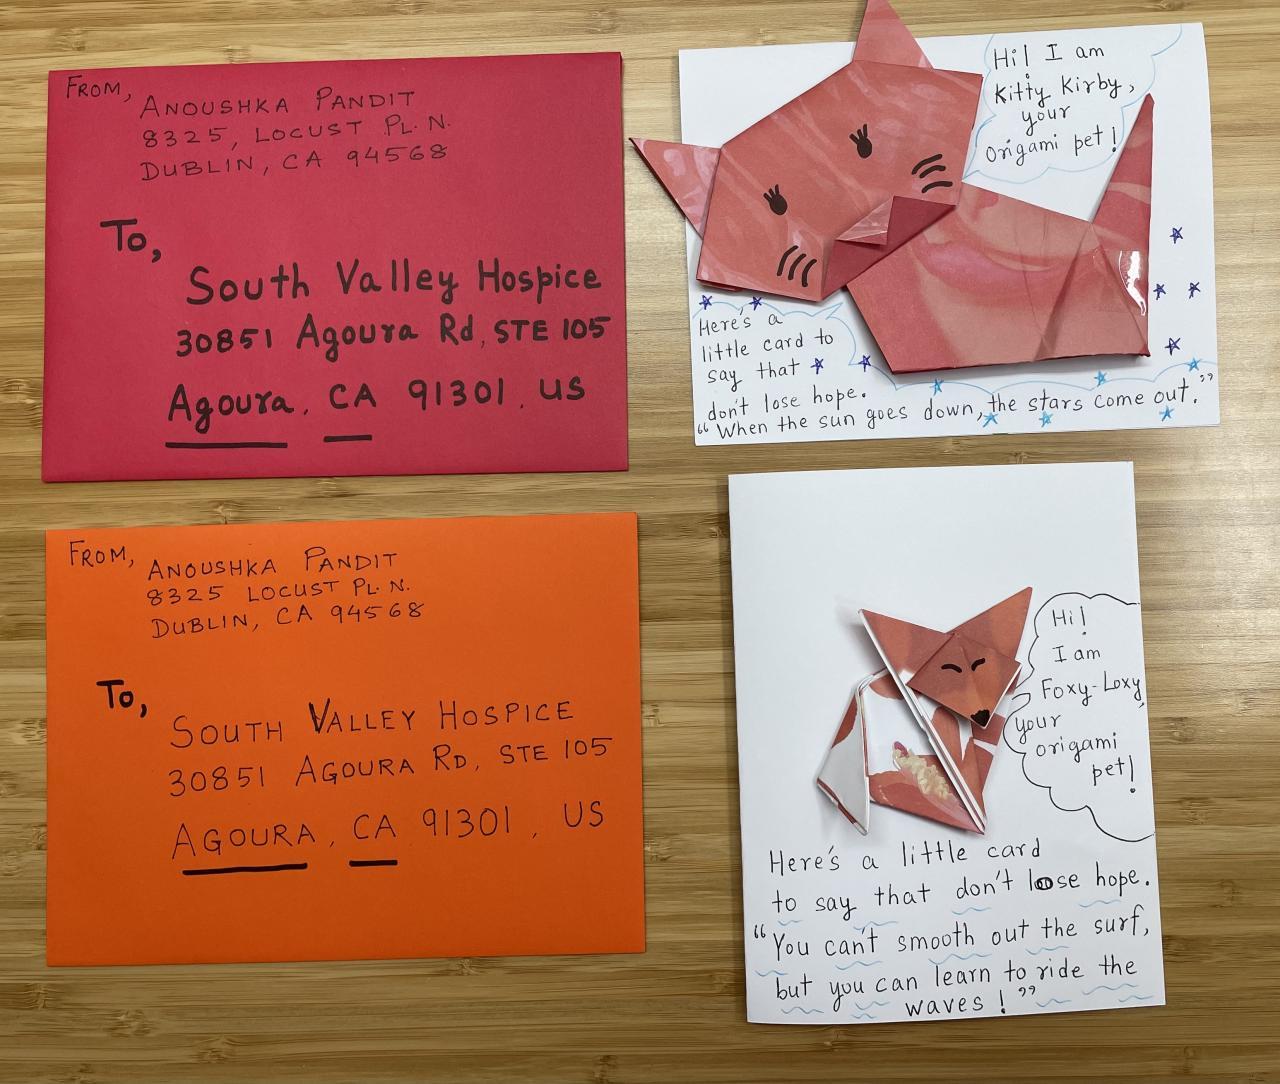 FROM,
ANOUSHKA PANDIT
8325, LOCUST PL. N.
DUBLIN, CA 94568
To,
South Valley Hospice
30851 Agoura Rd, STE 105
Agoura, CA 91301, US
Hi! I am
Kitty Kirby,
your
origami pet!
Here's a
little card to
say that
don't lose hope.
"When the sun goes down, the stars come out."
FROM,
ANOUSHKA PANDIT
8325 LOCUST PL. N.
DUBLIN, CA 94568
To,
SOUTH VALLEY HOSPICE
30851 AGOURA RD, STE 105
AGOURA, CA 91301, US
Hi!
I am
Foxy-Loxy,
your
origami
pet!
Here's a little card
to say that don't loose hope.
"You can't smooth out the surf,
but you can learn to ride the
waves!"